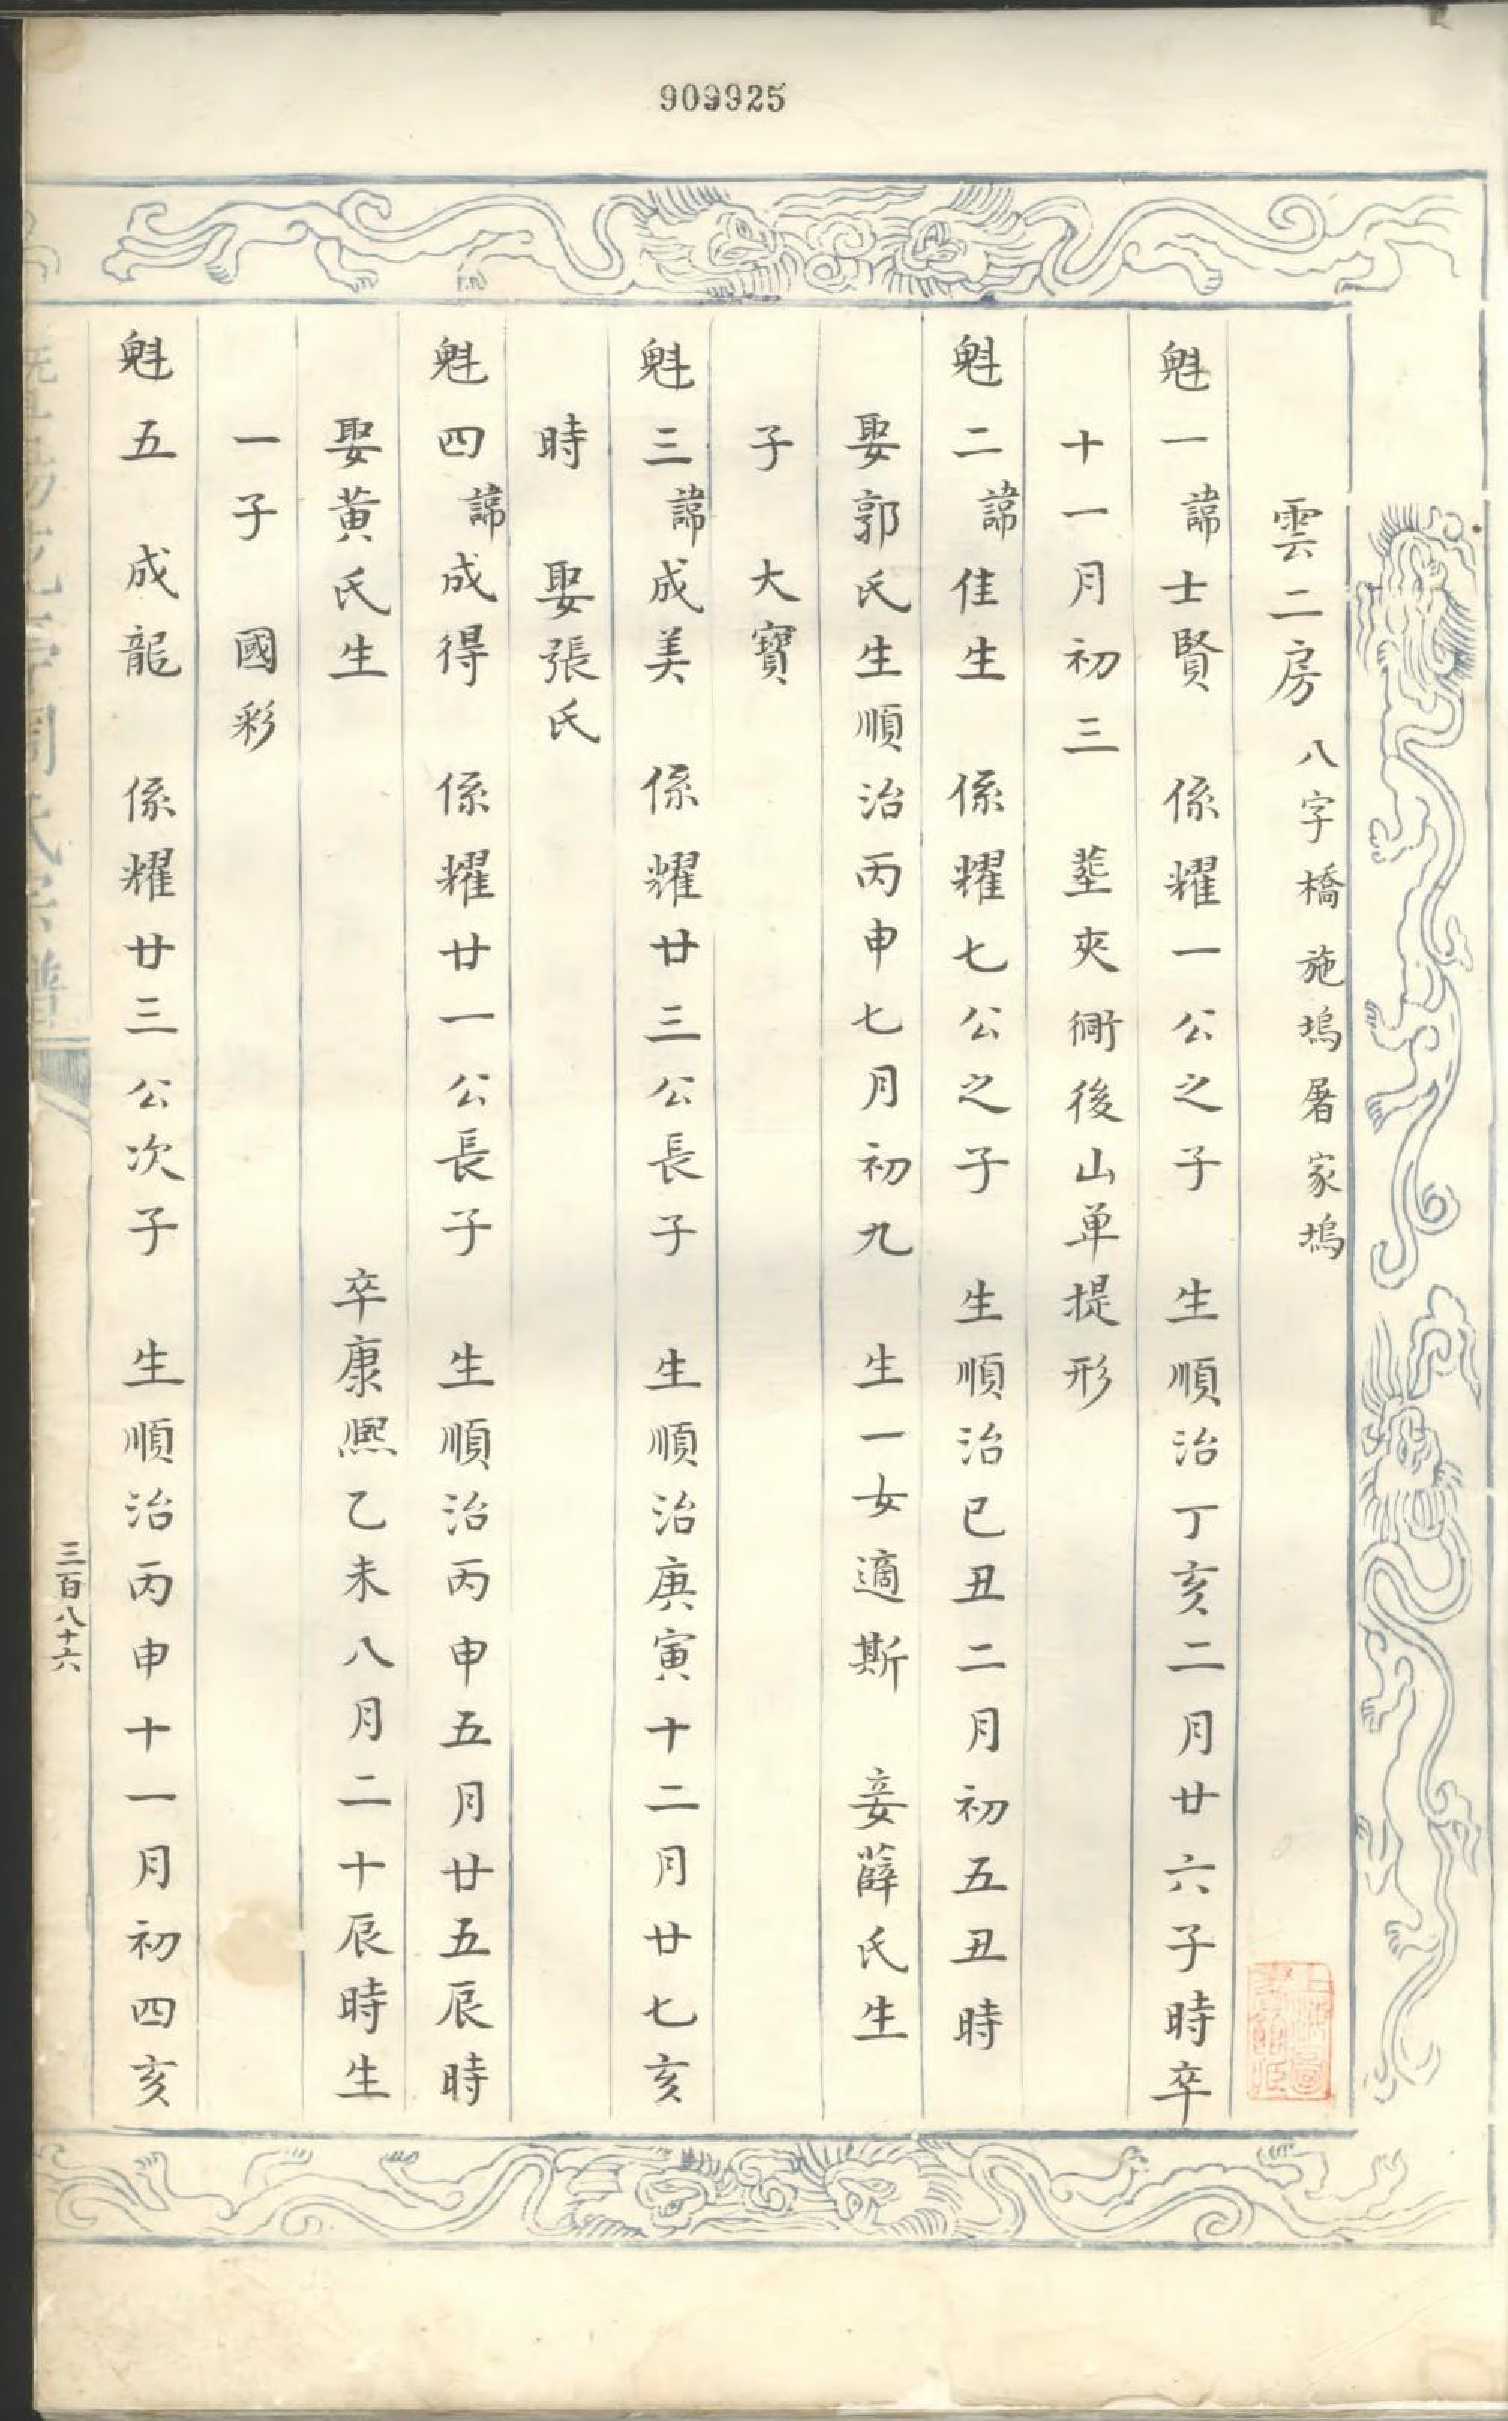 909925
雲二房 八字橋施塢屠家塢
魁一諱士賢 係耀一公之子 生順治丁亥二月廿六子時卒
十一月初三 塟夾衕後山单提形
魁二諱佳生 係耀七公之子 生順治已丑二月初五丑時
娶郭氏生順治丙申七月初九 生一女適斯 妾薛氏生
子 大寶
魁三諱成美 係耀廿三公長子 生順治庚寅十二月廿七亥
時 娶張氏
魁四諱成得 係耀廿一公長子 生順治丙申五月廿五辰時
娶黄氏生 卒康熙乙未八月二十辰時生
一子 國彩
魁五 成龍 係耀廿三公次子 生順治丙申十一月初四亥
三百八十六